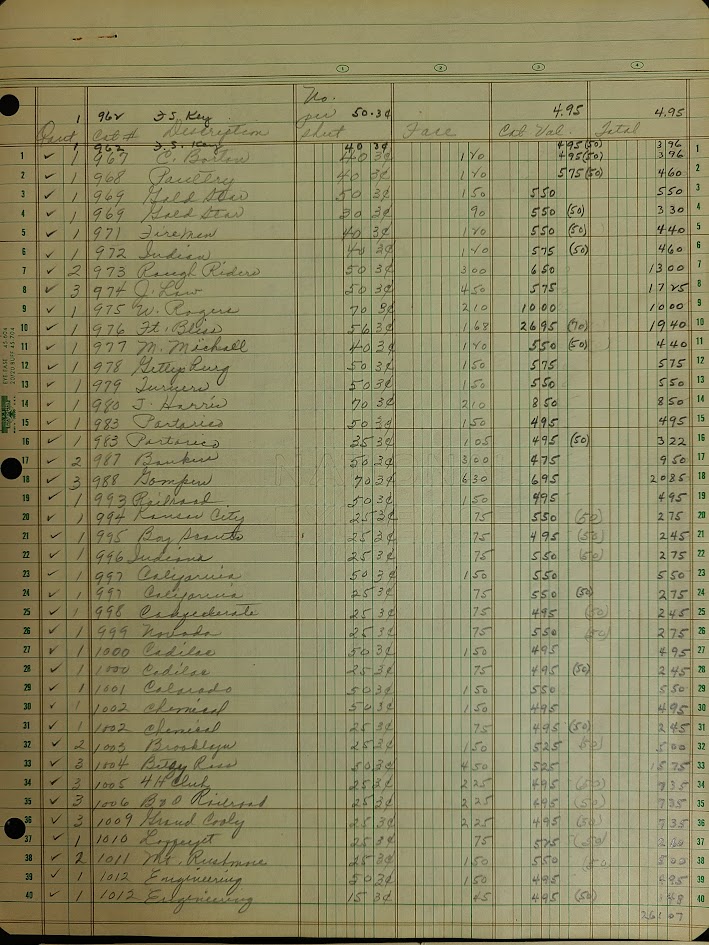 1 2 3 4
No.
1 962 F.S. Key per 50.3¢ 4.95 4.95
Quant Cat # Description sheet Face Cat Val. Total
1 962 F.S. Key 40 3¢ 495(50) 396
1 ✓ 1 967 C. Barton 40 3¢ 1 20 495(50) 396 1
2 ✓ 1 968 Poultry 40 3¢ 1 20 575(50) 460 2
3 ✓ 1 969 Gold Star 50 3¢ 1 50 550 550 3
4 ✓ 1 969 Gold Star 30 3¢ 90 550 (50) 330 4
5 ✓ 1 971 Firemen 40 3¢ 1 20 550 (50) 440 5
6 ✓ 1 972 Indian 40 3¢ 1 20 575 (50) 460 6
7 ✓ 2 973 Rough Riders 50 3¢ 300 650 1300 7
8 ✓ 3 974 J. Low 50 3¢ 450 575 1725 8
9 ✓ 1 975 W. Rogers 70 3¢ 210 1000 1000 9
10 ✓ 1 976 Ft. Bliss 56 3¢ 1 68 2695 (70) 1940 10
11 ✓ 1 977 M. Michall 40 3¢ 1 20 550 (50) 440 11
12 ✓ 1 978 Gettysburg 50 3¢ 150 575 575 12
13 ✓ 1 979 Turners 50 3¢ 150 550 550 13
14 ✓ 1 980 J. Harris 70 3¢ 210 850 850 14
15 ✓ 1 983 Portorico 50 3¢ 150 495 495 15
16 ✓ 1 983 Portorico 35 3¢ 105 495 (50) 322 16
17 ✓ 2 987 Bankers 50 3¢ 300 475 950 17
18 ✓ 3 988 Gompers 70 3¢ 630 695 2085 18
19 ✓ 1 993 Railroad 50 3¢ 150 495 495 19
20 ✓ 1 994 Kansas City 25 3¢ 75 550 (50) 275 20
21 ✓ 1 995 Boy Scouts 25 3¢ 75 495 (50) 245 21
22 ✓ 1 996 Indiana 25 3¢ 75 550 (50) 275 22
23 ✓ 1 997 California 50 3¢ 150 550 550 23
24 ✓ 1 997 California 25 3¢ 75 550 (50) 275 24
25 ✓ 1 998 Confederate 25 3¢ 75 495 (50) 245 25
26 ✓ 1 999 Nevada 25 3¢ 75 550 (50) 275 26
27 ✓ 1 1000 Cadilac 50 3¢ 150 495 495 27
28 ✓ 1 1000 Cadilac 25 3¢ 75 495 (50) 245 28
29 ✓ 1 1001 Colorado 50 3¢ 150 550 550 29
30 ✓ 1 1002 Chemical 50 3¢ 150 495 495 30
31 ✓ 1 1002 Chemical 25 3¢ 75 495 (50) 245 31
32 ✓ 2 1003 Brooklyn 25 3¢ 150 525 (50) 500 32
33 ✓ 3 1004 Betsy Ross 50 3¢ 450 525 1575 33
34 ✓ 3 1005 4H Club 25 3¢ 225 495 (50) 735 34
35 ✓ 3 1006 B&O Railroad 25 3¢ 225 495 (50) 735 35
36 ✓ 3 1009 Grand Cooly 25 3¢ 225 495 (50) 735 36
37 ✓ 1 1010 25 3¢ 75 (50) 37
38 ✓ 2 1011 Mt. Rushmore 25 3¢ 150 550 (50) 500 38
39 ✓ 1 1012 Engineering 50 3¢ 150 495 495 39
40 ✓ 1 1012 Engineering 15 3¢ 45 495 (50) 148 40
261 07